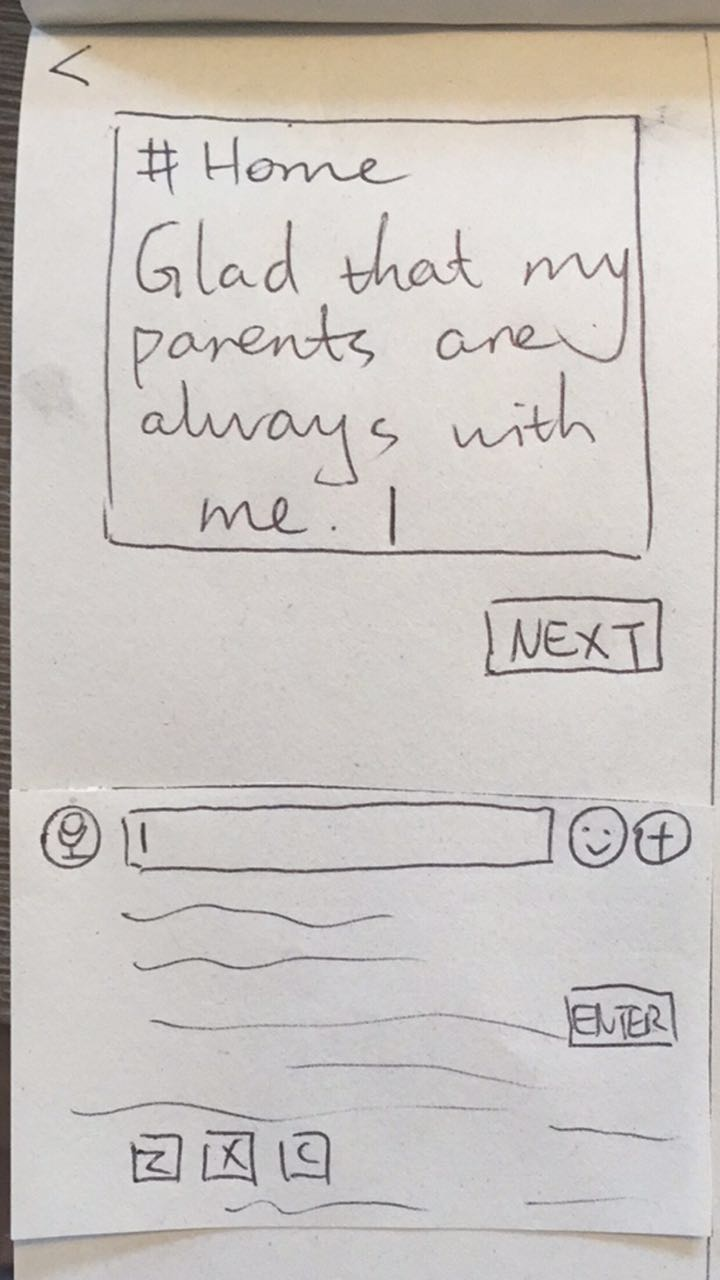 <
# Home
Glad that my
parents are
always with
me. |
NEXT
|
ENTER
Z X C